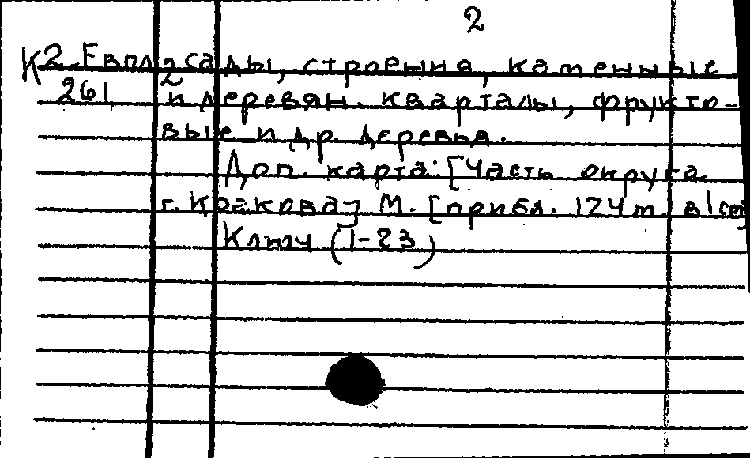 2
К 2-Евпл 2 сады, строения, каменные
261 и деревян. кварталы, фрукто-
вые и др. деревья.
Доп. карта: [Часть округа
г. Кракова] М. [прибл. 124 m] в 1 cm]
Ключ (1-23)